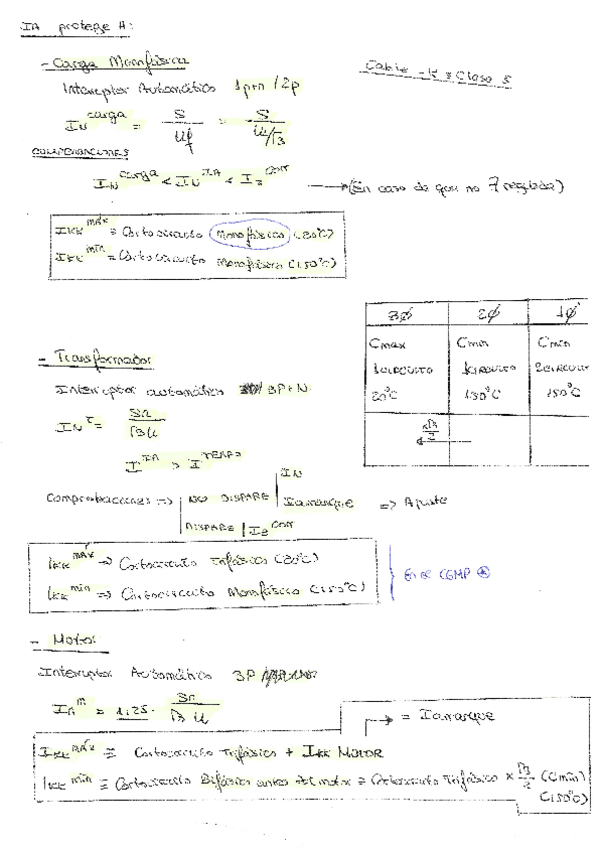 IA protege A:
- Carga Monofásica
Cable - K y Clase 5
Interruptor Automático 1p+n / 2p
IN^carga = S / Uf = S / U/√3
COMPROBACIONES
IN^carga < IN^IA < Iz^COND → (En caso de que no sea regulada)
Ikk^máx = Cortocircuito Monofásico (20ºC)
Ikk^mín = Cortocircuito Monofásico (150ºC)
3ϕ 2ϕ 1ϕ
Cmax Cmin Cmin
1 CIRCUITO 1 CIRCUITO 2 CIRCUIT
20ºC 150ºC 150ºC
√3/2
- Transformador
Interruptor automático 3P+N
IN^T = Sn / √3 U
I^IA > I^TRAFO
Comprobaciones => NO DISPARE IN
Iarranque => Ajuste
DISPARE Iz^COND
Ikk^máx => Cortocircuito Trifásico (20ºC)
Ikk^mín => Cortocircuito Monofásico (150ºC)
En el CGMP *
- Motor
Interruptor Automático 3P
In^m = 1.25 · Sn / √3 U
→ = Iarranque
Ikk^máx ≡ Cortocircuito Trifásico + Ikk MOTOR
Ikk^mín ≡ Cortocircuito Bifásico antes del motor = Cortocircuito Trifásico × √3/2 (Cmin)
(150ºC)